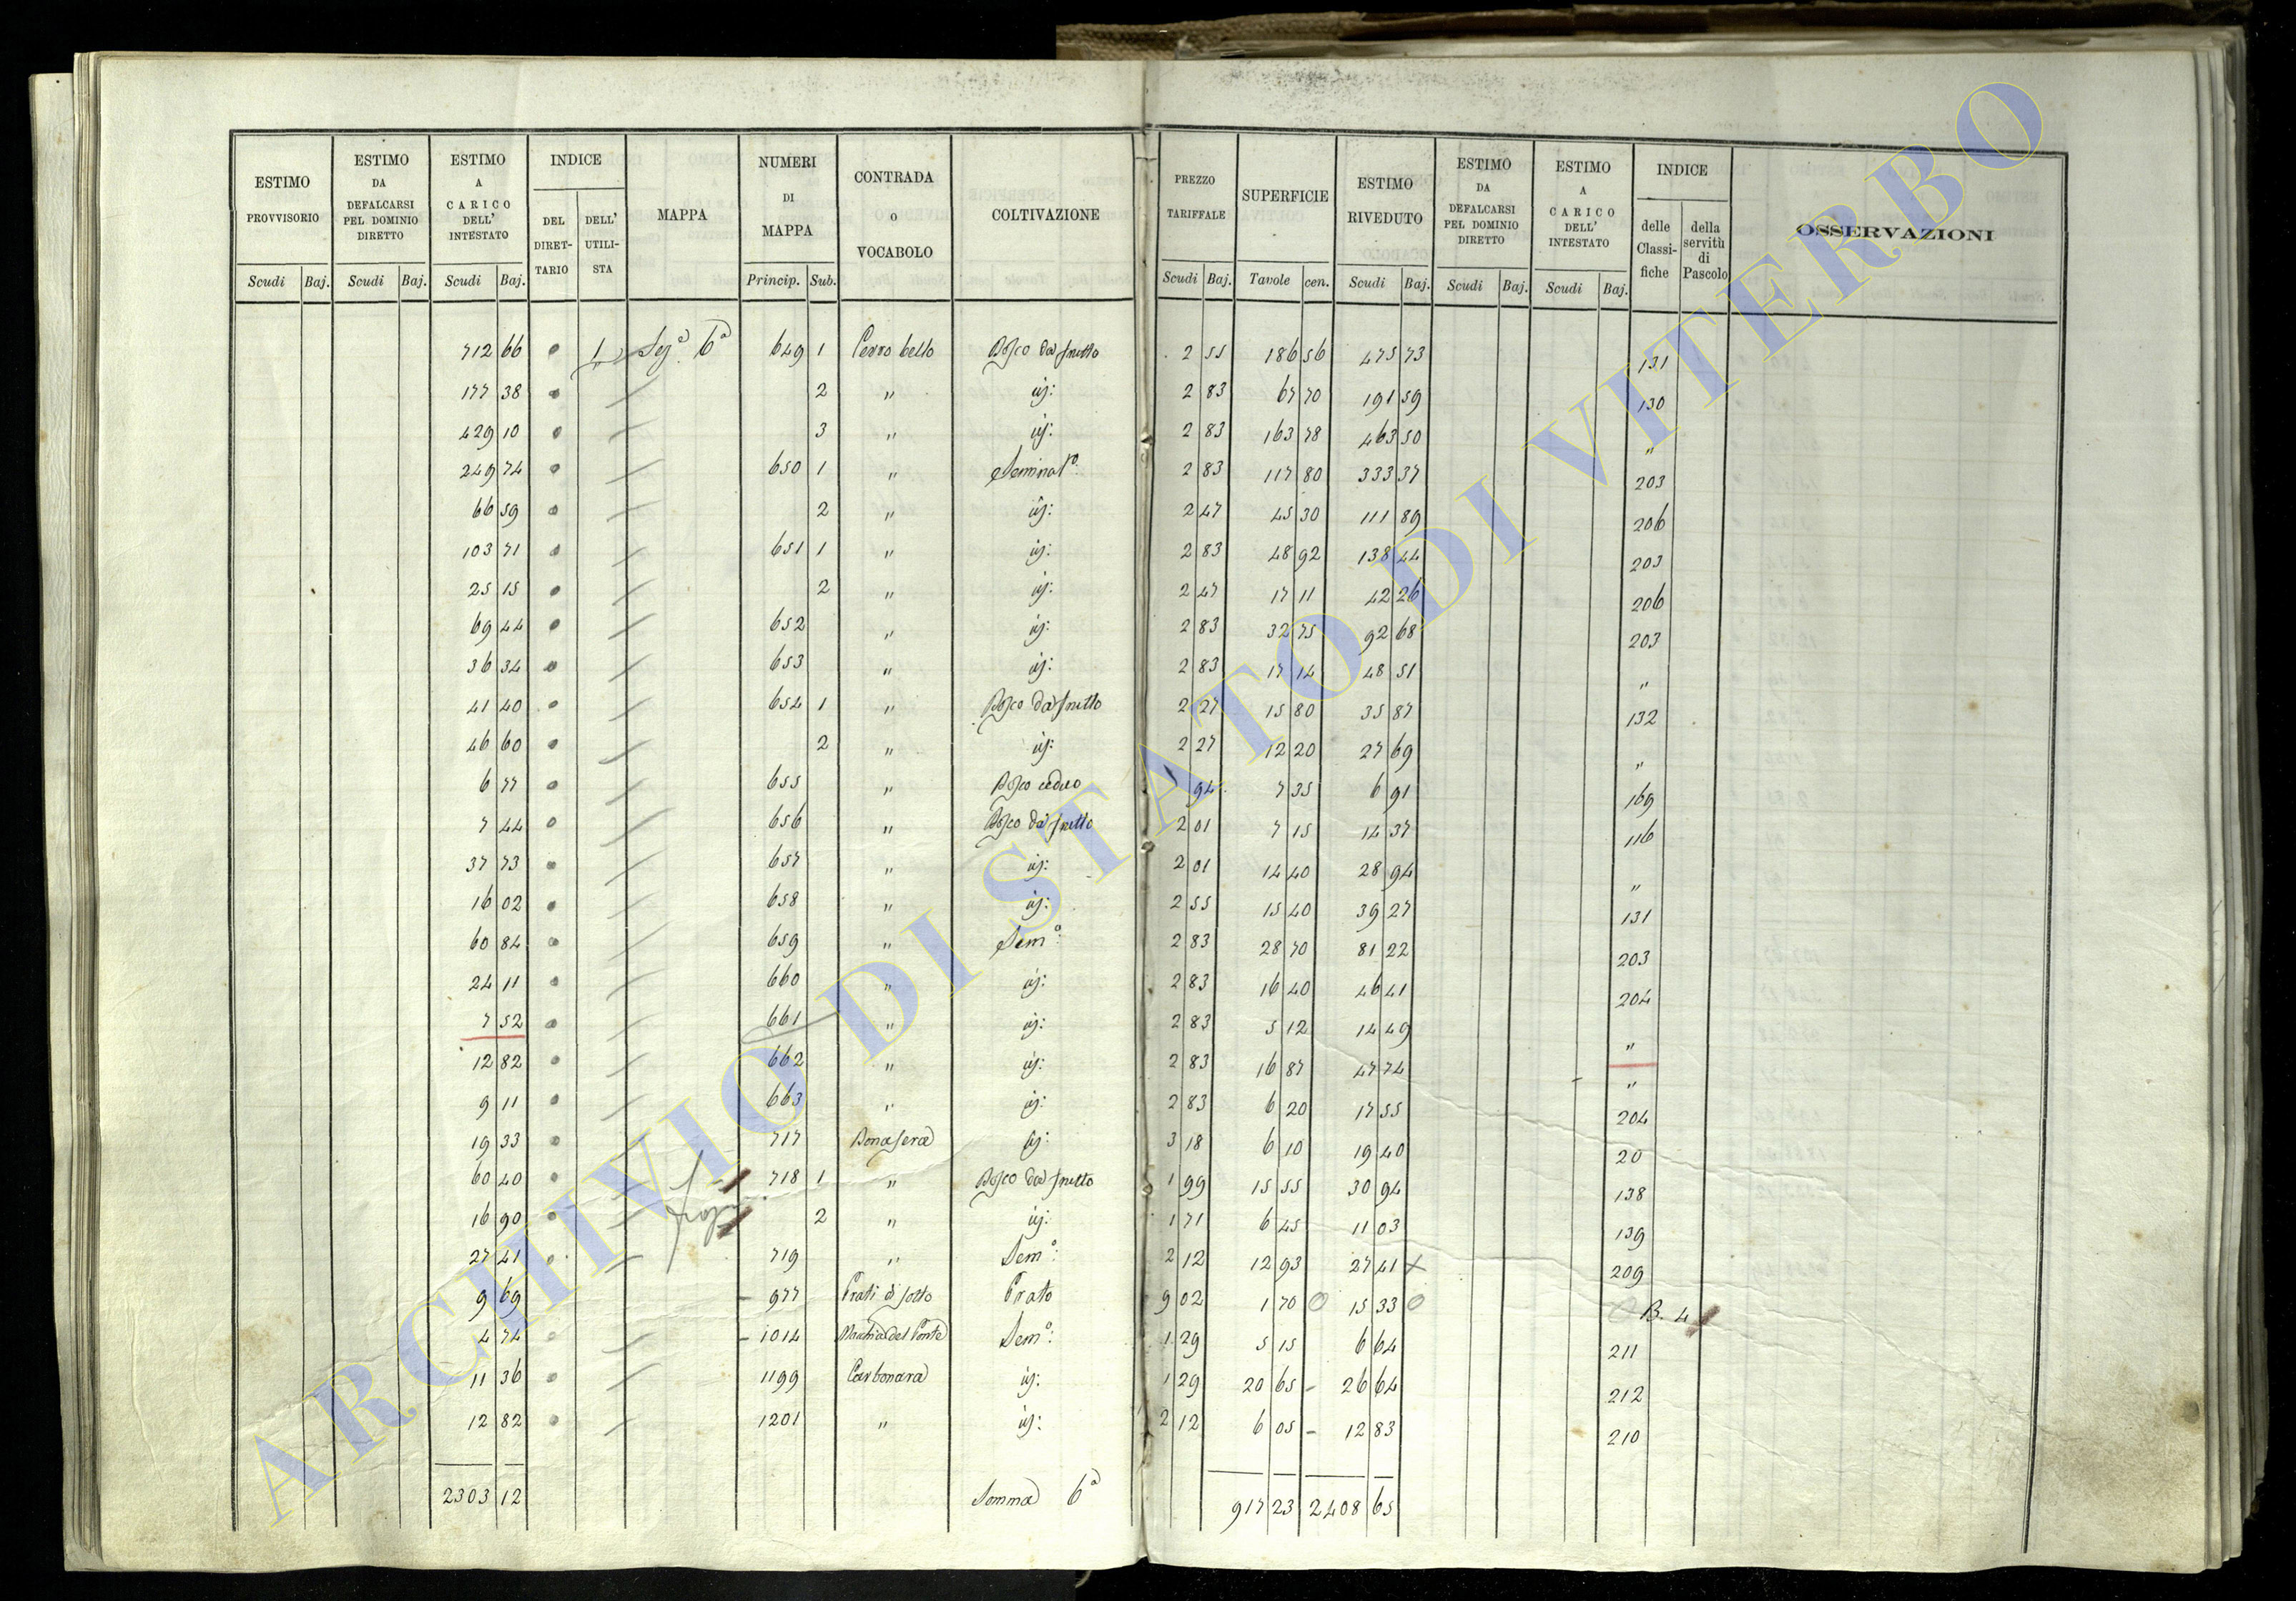 ESTIMO PROVVISORIO | ESTIMO DA DEFALCARSI PEL DOMINIO DIRETTO | ESTIMO A CARICO DELL' INTESTATO | INDICE DEL DIRETTARIO | DELL' UTILISTA | MAPPA | NUMERI DI MAPPA | CONTRADA o VOCABOLO | COLTIVAZIONE | PREZZO TARIFFALE | SUPERFICIE | ESTIMO RIVEDUTO | ESTIMO DA DEFALCARSI PEL DOMINIO DIRETTO | ESTIMO A CARICO DELL' INTESTATO | INDICE delle Classifiche | della servitù di Pascolo | OSSERVAZIONI
Scudi Baj. | Scudi Baj. | Scudi Baj. | Princip. Sub. | Scudi Baj. | Tavole cen. | Scudi Baj. | Scudi Baj. | Scudi Baj.
712 66 1 Seg.a 6a 649 1 Cerro bello Bosco da frutto 2 55 186 56 475 73 131
177 38 2 " id: 2 83 67 70 191 59 130
429 10 3 " id: 2 83 163 78 463 50 "
249 74 650 1 " Seminat.o 2 83 117 80 333 37 203
66 59 2 " id: 2 47 45 30 111 89 206
103 71 651 1 " id: 2 83 48 92 138 44 203
25 15 2 " id: 2 47 17 11 42 26 206
69 44 652 " id: 2 83 32 75 92 68 203
36 34 653 " id: 2 83 17 14 48 51 "
41 40 654 1 " Bosco da frutto 2 27 15 80 35 87 132
46 60 2 " id: 2 27 12 20 27 69 "
6 77 655 " Bosco ceduo 94 7 35 6 91 169
7 44 656 " Bosco da frutto 2 01 7 15 14 37 116
37 73 657 " id: 2 01 14 40 28 94 "
16 02 658 " id: 2 55 15 40 39 27 131
60 84 659 " Sem.o: 2 83 28 70 81 22 203
24 11 660 " id: 2 83 16 40 46 41 204
7 52 661 " id: 2 83 5 12 14 49 "
12 82 662 " id: 2 83 16 87 47 74 "
9 11 663 " id: 2 83 6 20 17 55 204
19 33 717 Bona sera id: 3 18 6 10 19 40 20
60 40 718 1 " Bosco da frutto 1 99 15 55 30 94 138
16 90 2 " id: 1 71 6 45 11 03 139
27 41 719 " Sem.o: 2 12 12 93 27 41 x 209
9 69 977 Prati di sotto Prato 9 02 1 70 0 15 33 0 B. 4
4 74 1014 Macchia del Ponte Sem.o: 1 29 5 15 6 64 211
11 36 1199 Carbonara id: 1 29 20 65 26 64 212
12 82 1201 " id: 2 12 6 05 12 83 210
2303 12 Somma 6a 917 23 2408 65
ARCHIVIO DI STATO DI VITERBO